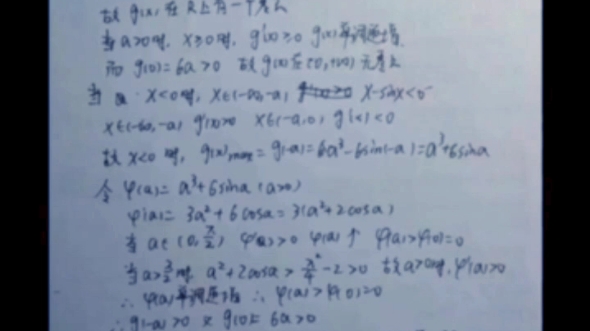 故 g(x) 在 R上有一个零点
当 a>0时, x≥0时, g'(x)≥0 g(x)单调递增
而 g(0)=6a>0 故 g(x)在(0,+∞)无零点
当 x<0时, x∈(-∞,-a) x-sinx<0
x∈(-∞,-a) g'(x)>0 x∈(-a,0), g'(x)<0
故 x<0 时, g(x)max = g(-a)=6a³-6sin(-a)=a³+6sina
令 φ(a)= a³+6sina (a>0)
φ'(a)= 3a²+6cosa=3(a²+2cosa)
当 a∈(0,π/2) φ'(a)>0 φ(a)↑ φ(a)>φ(0)=0
当a>π/2时 a²+2cosa>π²/4-2>0 故a>0时,φ'(a)>0
∴ φ(a)单调递增 ∴ φ(a)>φ(0)=0
∴ g(-a)>0 又 g(0)= 6a>0